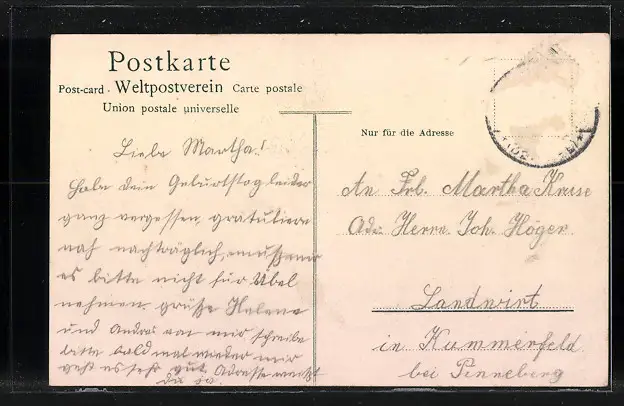 Postkarte
Post-card · Weltpostverein Carte postale
Union postale universelle
Nur für die Adresse
Liebe Martha!
Habe dein Geburtstag leider
ganz vergessen, gratuliere
nachträglich, mußt mir
es bitte nicht für Übel
nehmen. grüße Helene
und Andres von mir schreibe
bitte bald mal wieder mir
geht es sehr gut. Adresse weißt
Du ja.
An Frl. Martha Kruse
Adr. Herrn Joh. Höger.
Landwirt
in Kummerfeld
bei Pinneberg